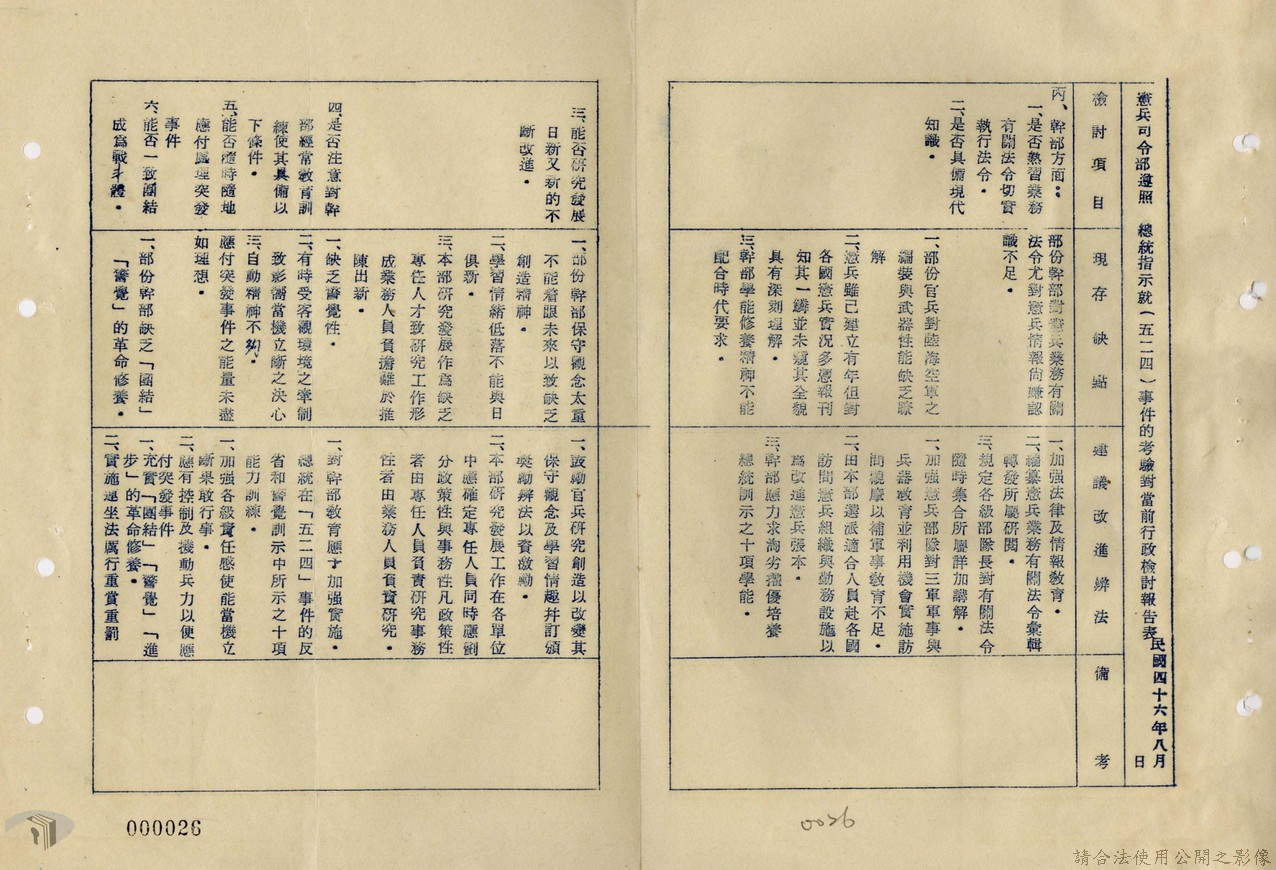 憲兵司令部遵照　總統指示就(五二四)事件的考驗對當前行政檢討報告表
民國四十六年八月　日
檢討項目
現存缺點
建議改進辦法
備考
丙、幹部方面：
一、是否熟習業務
有關法令切實
執行法令。
二、是否具備現代
知識。
部份幹部對憲兵業務有關
法令尤對憲兵情報尚嫌認
識不足。
一、部份官兵對陸海空軍之
編裝與武器性能缺乏瞭
解
二、憲兵雖已建立有年但對
各國憲兵實況多憑報刊
知其一鱗並未窺其全貌
具有深刻理解。
三、幹部學能修養精神不能
配合時代要求。
一、加強法律及情報教育。
二、編纂憲兵業務有關法令彙輯
轉發所屬研閱。
三、規定各級部隊長對有關法令
隨時集合所屬詳加講解。
一、加強憲兵部隊對三軍軍事與
兵器教育並利用機會實施訪
問觀摩以補軍事教育不足。
二、由本部選派適合人員赴各國
訪問憲兵組織與勤務設施以
為改進憲兵張本。
三、幹部應力求淘劣擢優培養
總統訓示之十項學能。
三、能否研究發展
日新又新的不
斷改進。
四、是否注意對幹
部經常教育訓
練使其具備以
下條件。
五、能否隨時隨地
應付處理突發
事件
六、能否一致團結
成為戰鬥體。
一、部份幹部保守觀念太重
不能着眼未來以致缺乏
創造精神。
二、學習情緒低落不能與日
俱新。
三、本部研究發展作為缺乏
專任人才致研究工作形
成業務人員負擔難於推
陳出新。
一、缺乏警覺性。
二、有時受客觀環境之牽制
致影響當機立斷之決心
三、自動精神不夠。
應付突發事件之能量未盡
如理想。
一、部份幹部缺乏「團結」
「警覺」的革命修養。
一、鼓勵官兵研究創造以改變其
保守觀念及學習情趣并訂頒
獎勵辦法以資激勵。
二、本部研究發展工作在各單位
中應確定專任人員同時應劃
分政策性與事務性凡政策性
者由專任人員負責研究事務
性者由業務人員負責研究。
一、對幹部教育應予加強實施。
總統在「五二四」事件的反
省和警覺訓示中所示之十項
能力訓練。
一、加強各級責任感使能當機立
斷果敢行事。
二、應有控制及機動兵力以便應
付突發事件
一、充實「團結」「警覺」「進
步」的革命修養。
二、實施連坐法厲行重賞重罰
000026
0026
請合法使用公開之影像